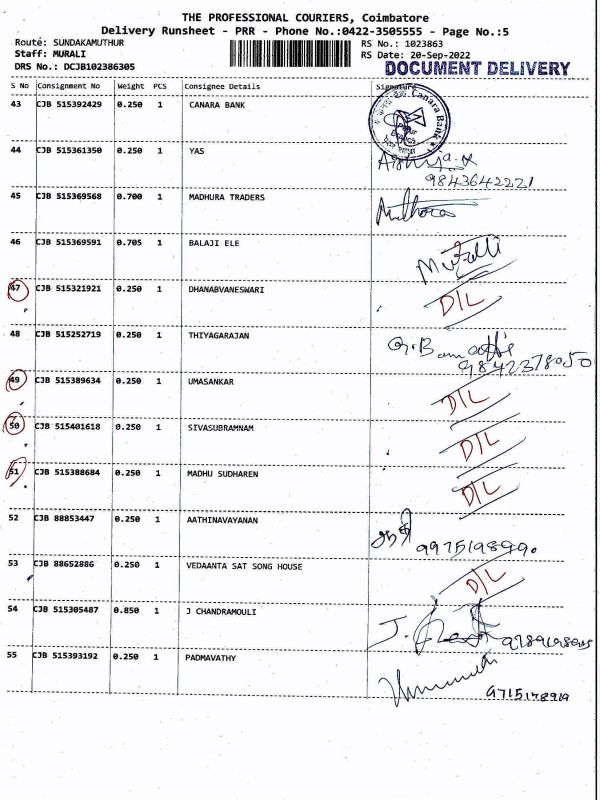 THE PROFESSIONAL COURIERS, Coimbatore
Delivery Runsheet - PRR - Phone No.:0422-3505555 - Page No.:5
Route: SUNDAKAMUTHUR RS No.: 1023863
Staff: MURALI RS Date: 20-Sep-2022
DRS No.: DCJB102386305 DOCUMENT DELIVERY
S No Consignment No Weight PCS Consignee Details Signature
43 CJB 515392429 0.250 1 CANARA BANK Canara Bank
44 CJB 515361350 0.250 1 YAS
9843642221
45 CJB 515369568 0.700 1 MADHURA TRADERS
46 CJB 515369591 0.705 1 BALAJI ELE
47 CJB 515321921 0.250 1 DHANABVANESWARI D/L
48 CJB 515252719 0.250 1 THIYAGARAJAN
9842378050
49 CJB 515389634 0.250 1 UMASANKAR D/L
50 CJB 515401618 0.250 1 SIVASUBRAMNAM D/L
51 CJB 515388684 0.250 1 MADHU SUDHAREN D/L
52 CJB 88853447 0.250 1 AATHINAVAYANAN
53 CJB 88652886 0.250 1 VEDAANTA SAT SONG HOUSE D/L
54 CJB 515305487 0.850 1 J CHANDRAMOULI
55 CJB 515393192 0.250 1 PADMAVATHY
9715178919